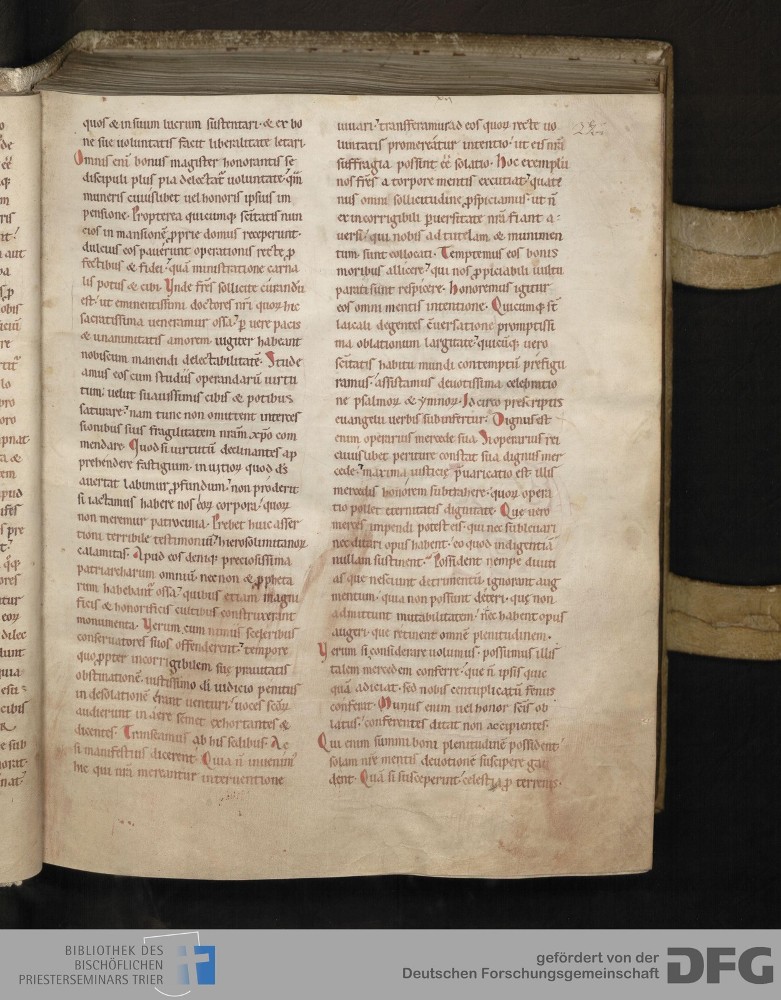 quos & in suum lucrum sustentari. & ex bo
ne sue voluntatis facit liberalitate letari.
Omnis eni bonus magister honorantis se
discipuli plus pia delectat voluntate qm
muneris cuiuslibet vel honoris ipsius im
pensione. Propterea quicumq scitatis nun
cios in mansione pprie domus receperunt.
dulcius eos paverunt operationis recte p
fectibus & fidei qua ministratione carna
lis potus & cibi. Unde frs sollicite curandu
est. ut eminentissimi doctores nri quor hic
sacratissima veneramur ossa p vere pacis
& unanimitatis amorem iugiter habeant
nobiscum manendi delectabilitate. Stude
amus eos cum studiis operandaru virtu
tum. velut suavissimis cibis & potibus
saturare nam tunc non omittent interces
sionibus suis fragilitatem nram xpo com
mendare. Quod si virtutu declinantes ap
prehendere fastigium. in vitior quod ds
avertat labimur pfundum non proderit
si iactamus habere nos eor corpora. quor
non meremur patrocinia. Prebet huic asser
tioni terribile testimoniu hierosolimitanor
calamitas. Apud eos deniq preciosissima
patriarcharum omniu necnon & ppheta
rum habebant ossa quibus etiam magni
ficis & honorificis cultibus construxerant
monumenta. Verum cum nimiis sceleribus
conservatores suos offenderent tempore
quo ppter incorrigibilem sue pravitatis
obstinatione iustissimo di iudicio penitus
in desolatione erant venturi voces scor
audierunt in aere semet exhortantes &
dicentes. Transeamus ab his sedibus. Ac
si manifestius dicerent. Quia n inveniun
hic qui nra mereantur interventione
iuvari transferamur ad eos quor recte vo
luntatis promereatur intentio. ut eis nra
suffragia possint ee solatio. Hoc exemplu
nos frs a torpore mentis excutiat quate
nus omni sollicitudine pspiciamus. ut n
ex incorrigibili pversitate nra fiant a
versi. qui nobis ad tutelam & munimen
tum sunt collocati. Temptemus eos bonis
moribus allicere qui nos pplaciabili vultu
parati sunt respicere. Honoremus igitur
eos omni mentis intentione. Quicumq st
laicali degentes cversatione promptissi
ma oblationum largitate quicuq vero
scitatis habitu mundi contemptu prefigu
ramus. assistamus devotissima celebratio
ne psalmor & ymnor. Idcirco prescriptis
evangelii verbis subinfertur. Dignus est
enim operarius mercede sua. Si operarius rei
cuiuslibet periture constat sua dignus mer
cede maxima iusticie pvaricatio est illis
mercedis honorem subtrahere. quor opera
tio pollet eternitatis dignitate. Que vero
merces impendi potest eis. qui nec sublevari
nec ditari opus habent. eo quod indigentia
nullam sustinent. Possident nempe diviti
as que nesciunt detrimentu. ignorant aug
mentum. quia non possunt deteri. que non
admittunt mutabilitatem nec habent opus
augeri. que retinent omne plenitudinem.
Verum si considerare volumus. possumus illis
talem mercedem conferre. que n ipsis quic
qua adiciat. sed nobis centuplicatu fenus
conferat. Munus enim vel honor scis ob
latus. conferentes ditat non accipientes.
Qui enim summi boni plenitudine possident
solam nre mentis devotione suscipere gau
dent. Qua si susceperint. celestia p terrenis.
BIBLIOTHEK DES
BISCHÖFLICHEN
PRIESTERSEMINARS TRIER
gefördert von der
Deutschen Forschungsgemeinschaft
DFG